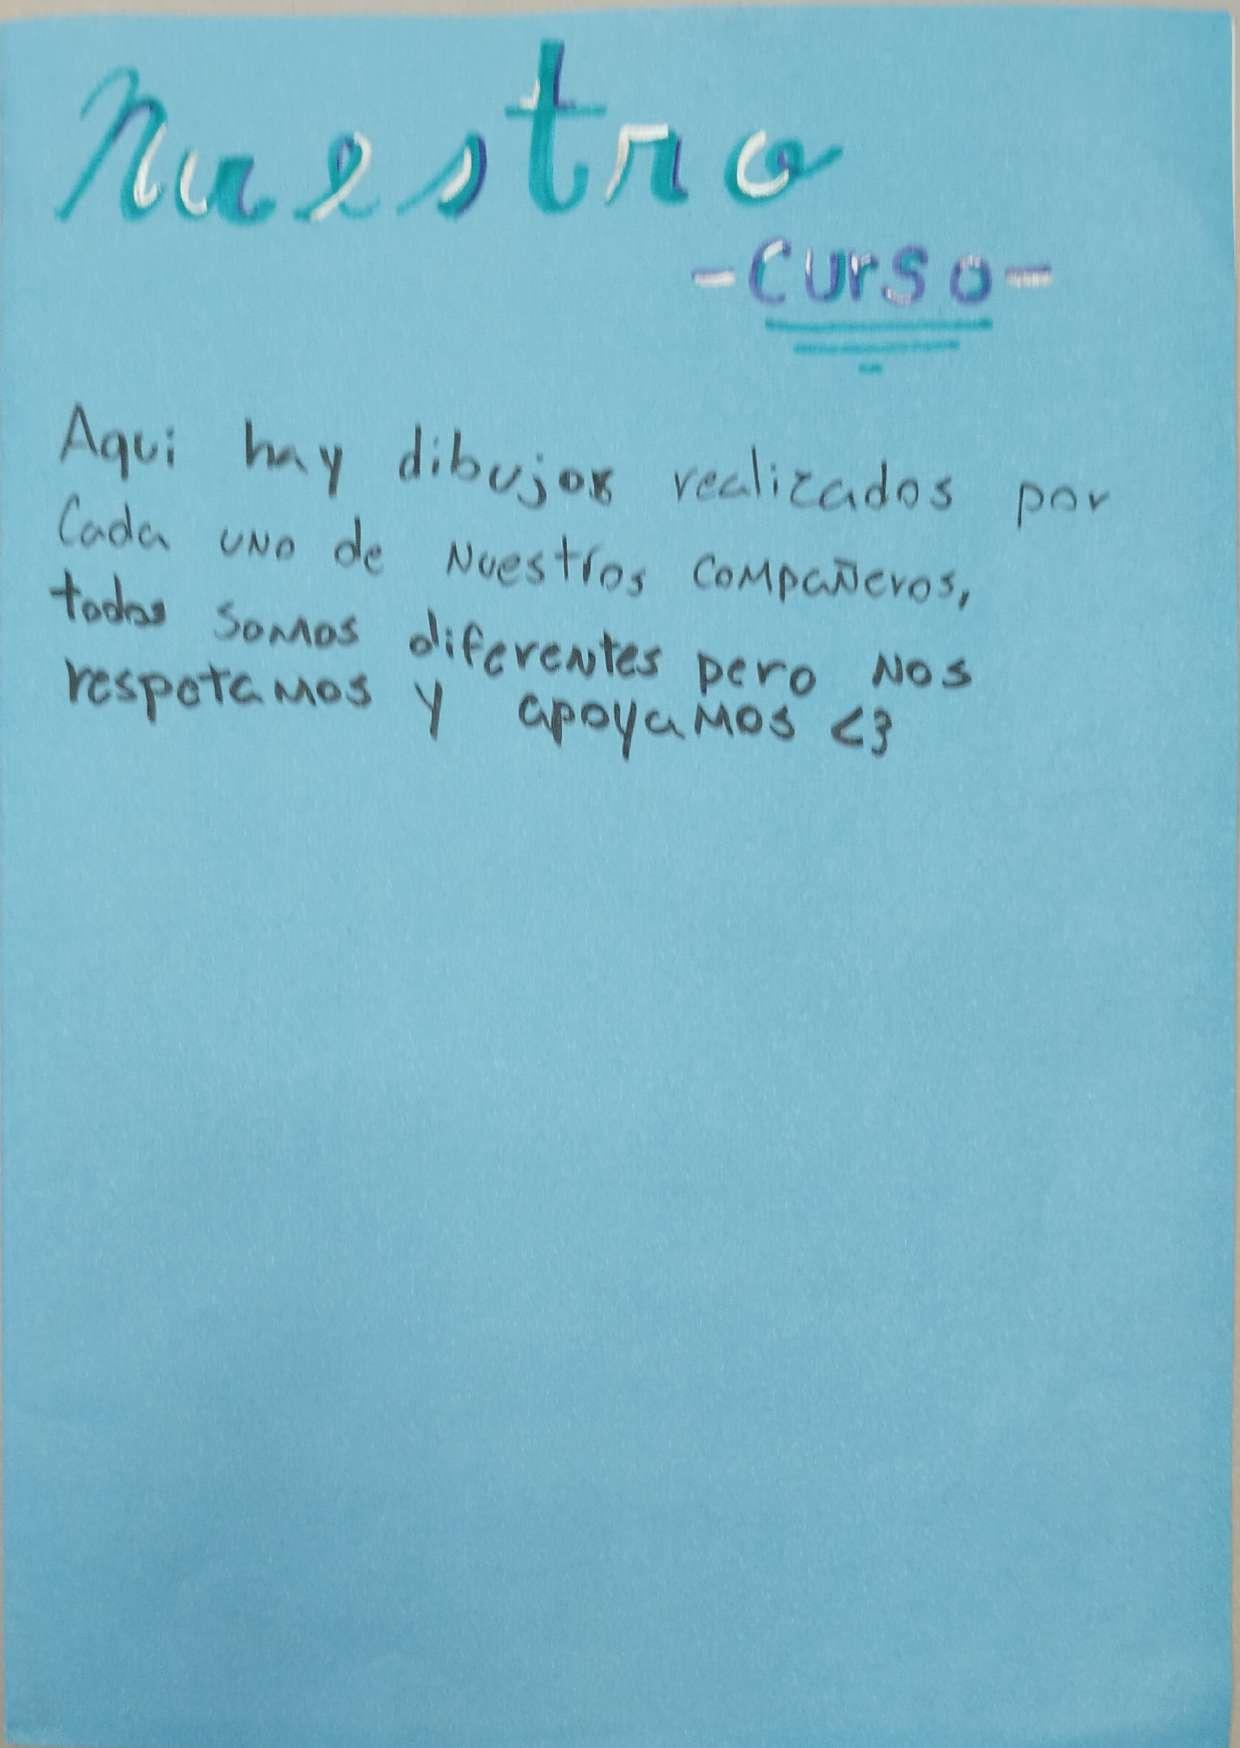 Nuestro
-Curso-
Aqui hay dibujos realizados por
Cada uno de Nuestros compañeros,
todos somos diferentes pero Nos
respetamos y apoyamos <3